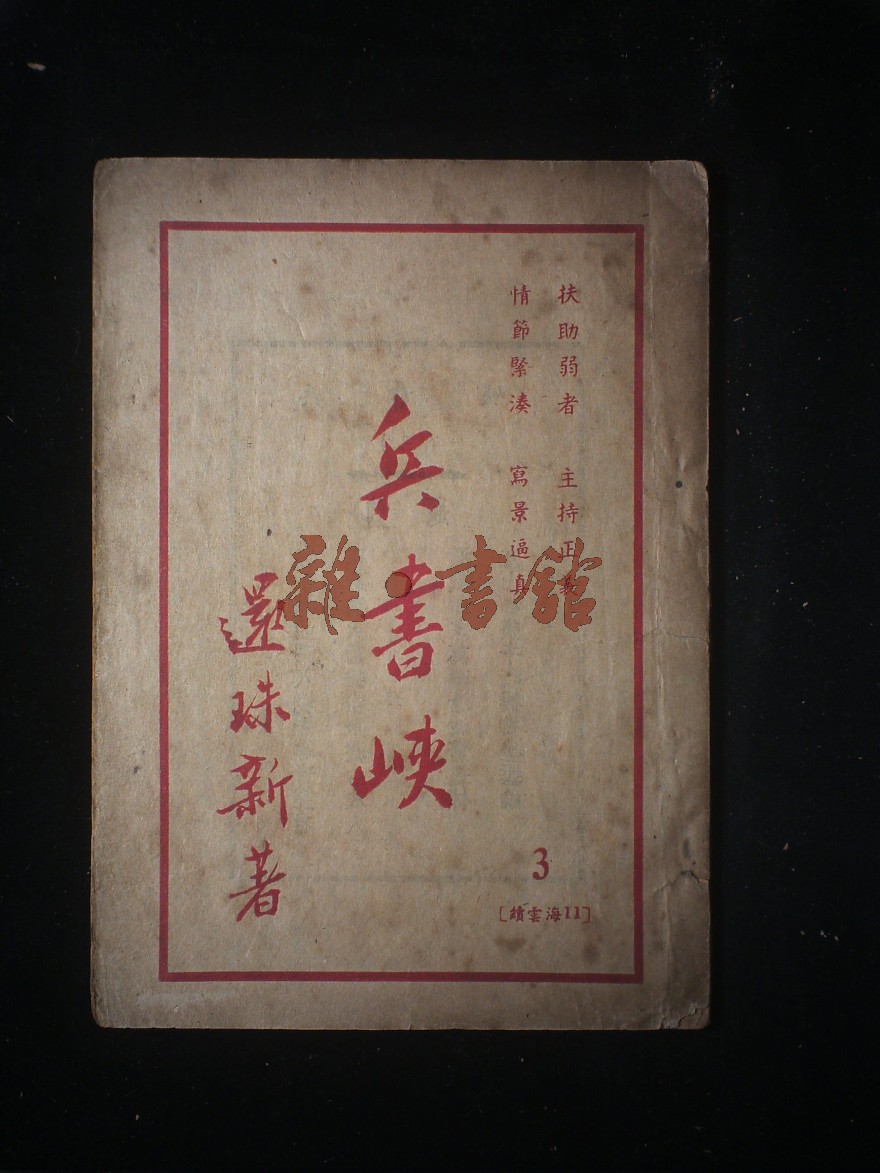 扶助弱者　主持正義
情節緊湊　寫景逼真
兵書峽
還珠新著
3
[續雲海11]
雜·書館